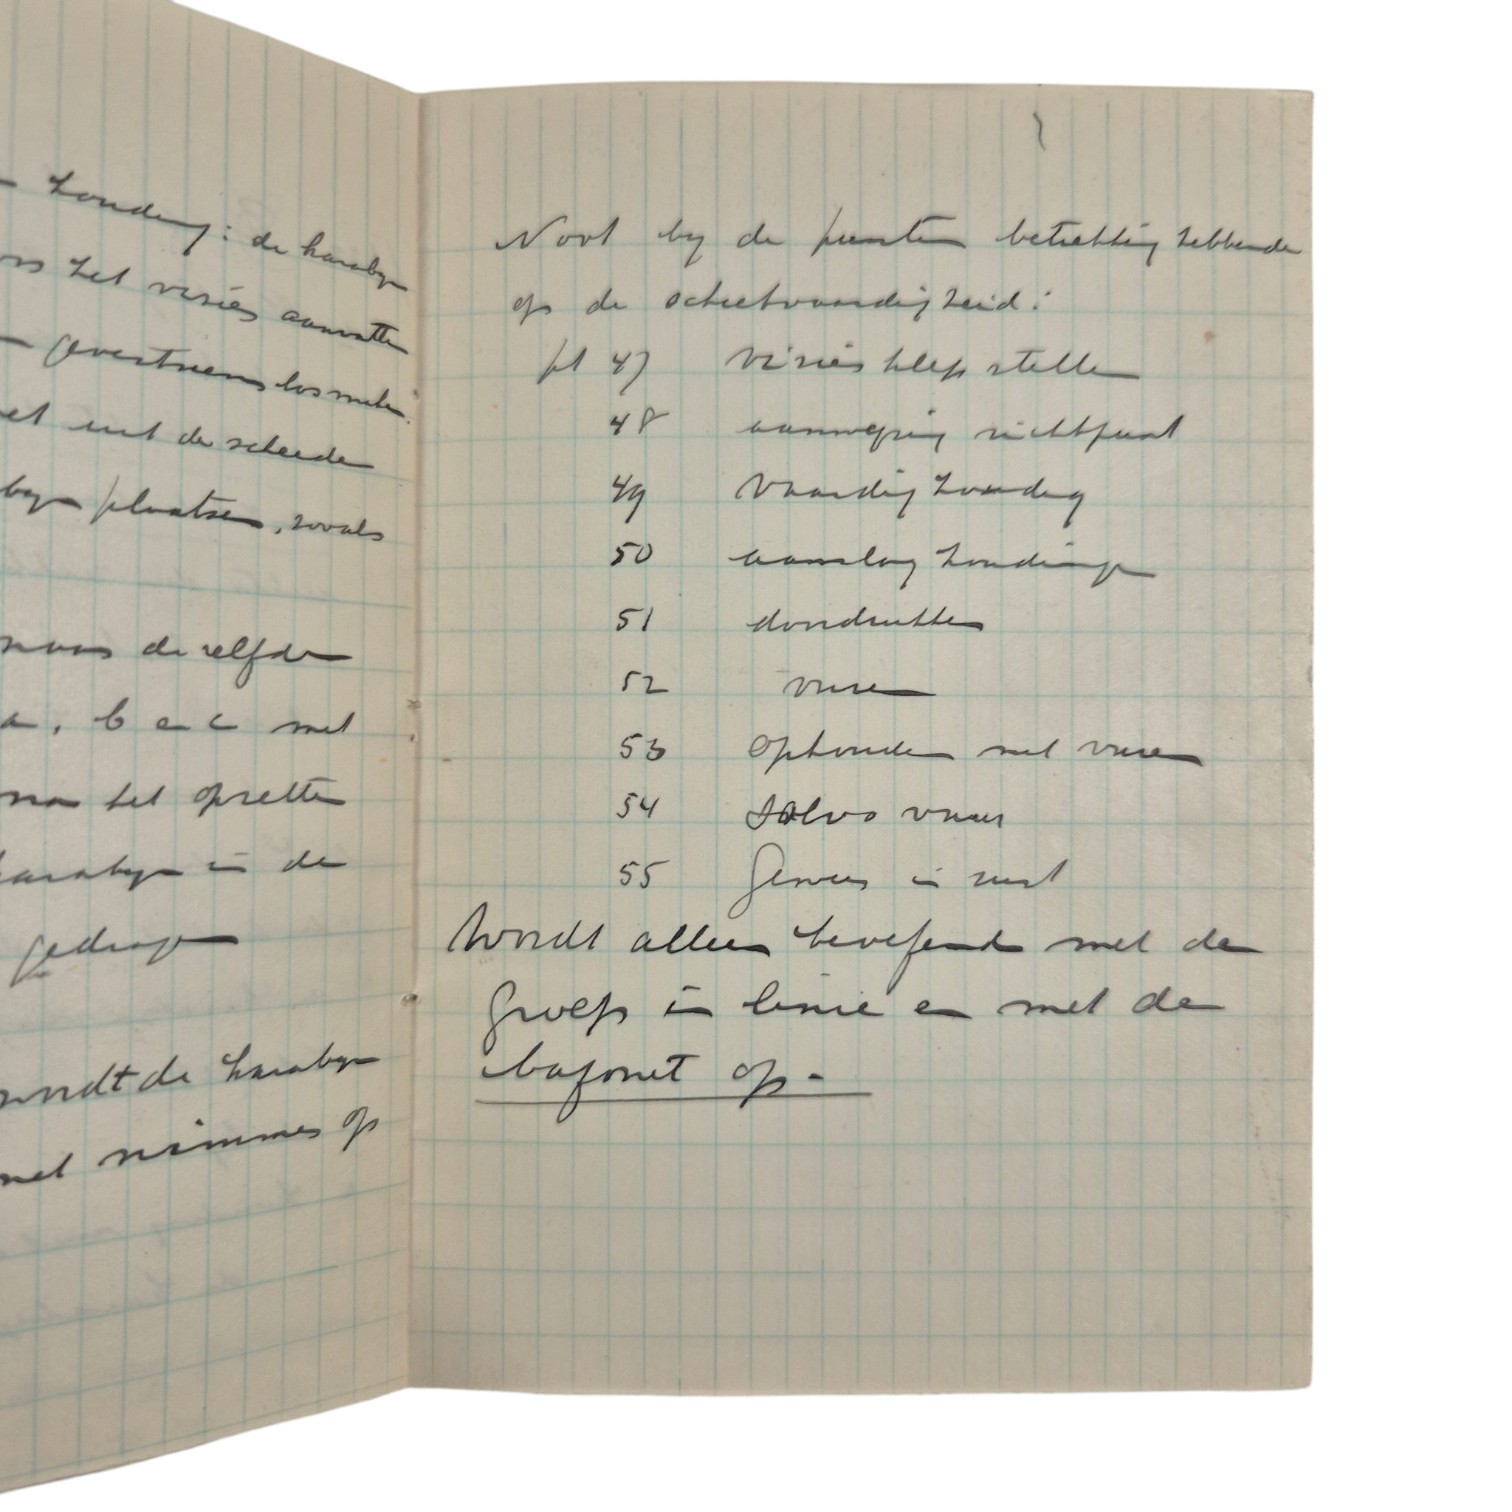 houding: de karabyn
het visier aanvatten
losmaken.
met de scheede
plaatsen, zooals
de zelfde
a, b en c met
het opzetten
karabyn in de
gedragen
wordt de karabyn
met nimmer op
Noot by de punten betrekking hebbende
op de schietvaardigheid:
pt 47 visierklep stellen
48 aanwijzing richtpunt
49 vaardig houding
50 aanslag houdingen
51 doordrukken
52 vuren
53 ophouden met vuren
54 salvo vuur
55 Geweer in rust
Wordt alleen beoefend met de
Groep in linie en met de
bajonet op.-